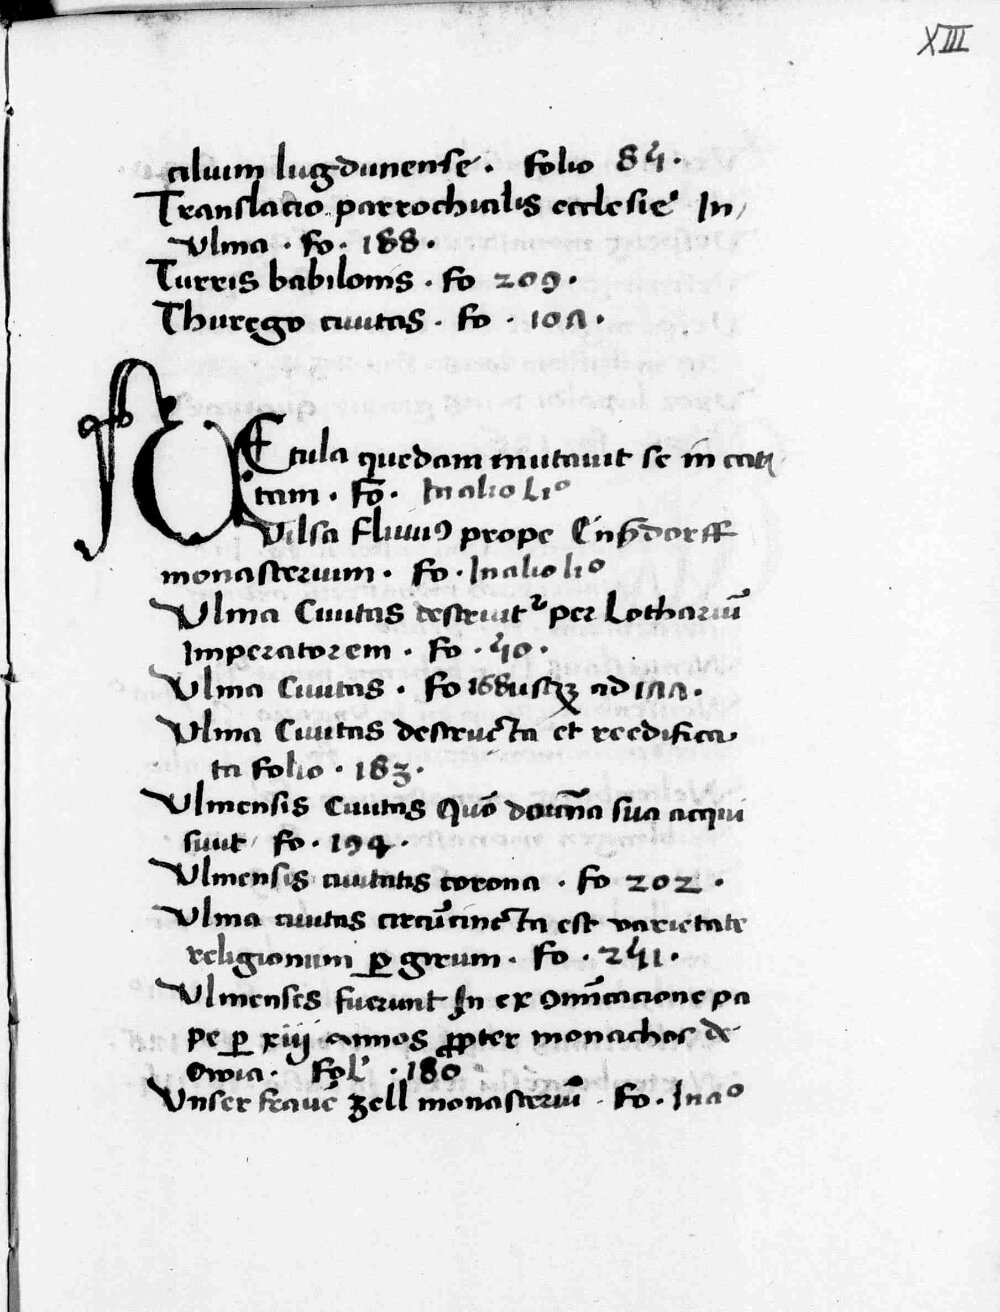 XIII
cilium lugdunense . folio 84 .
Translacio parrochialis ecclesie In
Ulma . fo . 188 .
Turris babilonis . fo 209 .
Thurego civitas . fo . 101 .
VEtula quedam mutavit se in cat
tam . fō . In alio lio
Vilsa fluviꝯ prope
monasterium . fo . In alio lio
Ulma Civitas destruit᷑ per Lothariū
Imperatorem . fo . 40 .
Ulma Civitas . fo 168 usqꝫ ad 177 .
Ulma Civitas destructa et reedifica
ta folio . 183 .
Ulmensis Civitas Quō domīa sua acqui
siuit fo . 194 .
Ulmensis civitatis corona . fo 202 .
Ulma civitas circūcincta est varietate
religionum ꝑ girum . fo . 241 .
Ulmenses fuerunt In exꝯmūicacione pa
pe ꝑ xiij annos ꝓpter monachos de
Owia . fol' . 180
Unser fraue zell monasteriū . fo . In ao